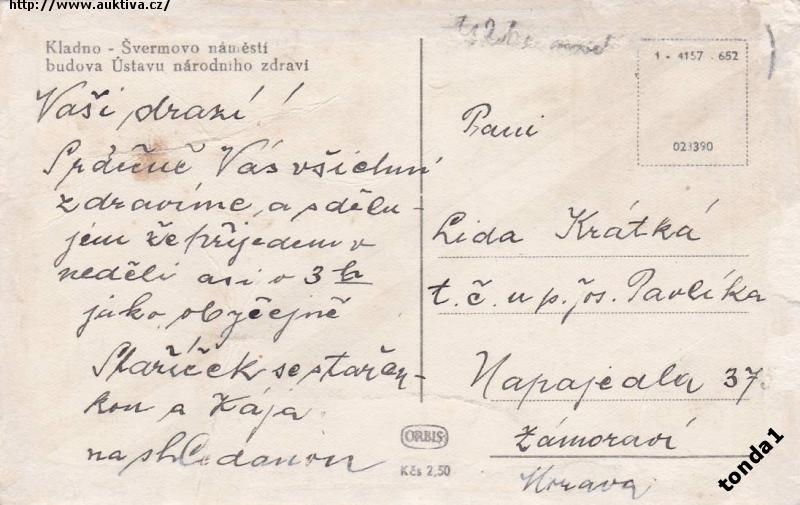 http://www.auktiva.cz/
Kladno - Švermovo náměstí
budova Ústavu národního zdraví
Vaši drazí!
Srdečně Vás všichni
zdravíme, a sdělu-
jem že přijedem v
neděli asi v 3 h
jako obyčejně
Staříček se stařen-
kou a Kája
nashledanou
1 - 4157 - 652
021390
Paní
Lida Krátká
t.č. u p. Jos. Pavlíka
Napajedla 37
Zámoraví
Morava
ORBIS
Kčs 2,50
tonda1